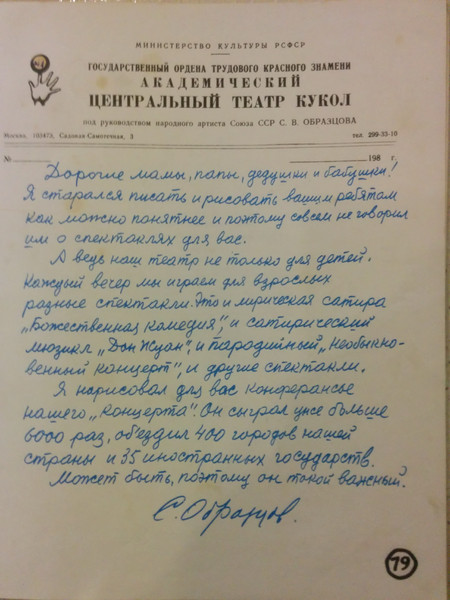 МИНИСТЕРСТВО КУЛЬТУРЫ РСФСР
ГОСУДАРСТВЕННЫЙ ОРДЕНА ТРУДОВОГО КРАСНОГО ЗНАМЕНИ
АКАДЕМИЧЕСКИЙ
ЦЕНТРАЛЬНЫЙ ТЕАТР КУКОЛ
под руководством народного артиста Союза ССР С. В. ОБРАЗЦОВА
Москва, 103473, Садовая-Самотечная, 3 тел. 299-33-10
№ 198 г.
Дорогие мамы, папы, дедушки и бабушки!
Я старался писать и рисовать вашим ребятам
как можно понятнее и поэтому совсем не говорил
им о спектаклях для вас.
А ведь наш театр не только для детей.
Каждый вечер мы играем для взрослых
разные спектакли. Это и лирическая сатира
„Божественная комедия", и сатирический
мюзикл „Дон Жуан", и пародийный „Необыкно-
венный концерт", и другие спектакли.
Я нарисовал для вас конферансье
нашего „Концерта". Он сыграл уже больше
6000 раз, объездил 400 городов нашей
страны и 35 иностранных государств.
Может быть, поэтому он такой важный.
С. Образцов.
79